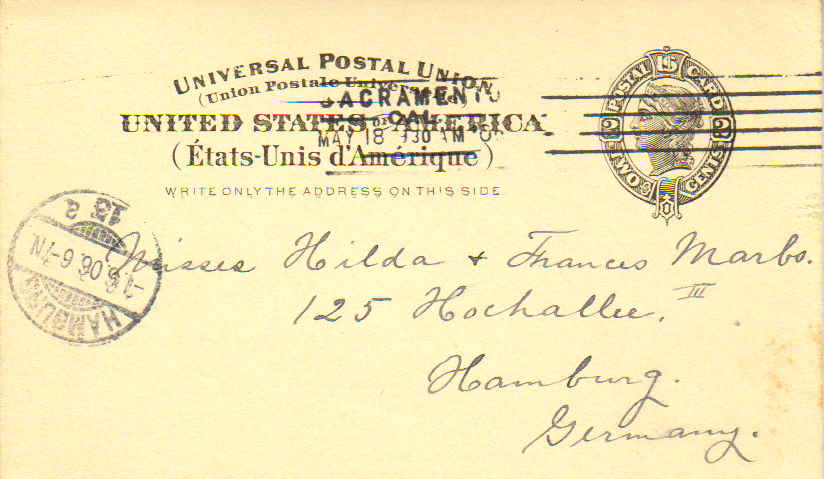 UNIVERSAL POSTAL UNION
(Union Postale Universelle)
SACRAMENTO
CAL.
UNITED STATES OF AMERICA
MAY 18 930 AM '06
(États-Unis d'Amérique)
WRITE ONLY THE ADDRESS ON THIS SIDE
U.S. POSTAL CARD
TWO 2 CENTS 2
HAMBURG
-1.6.06.6-7N
13 a
Misses Hilda + Frances Marbs.
125 Hochallee. III
Hamburg.
Germany.